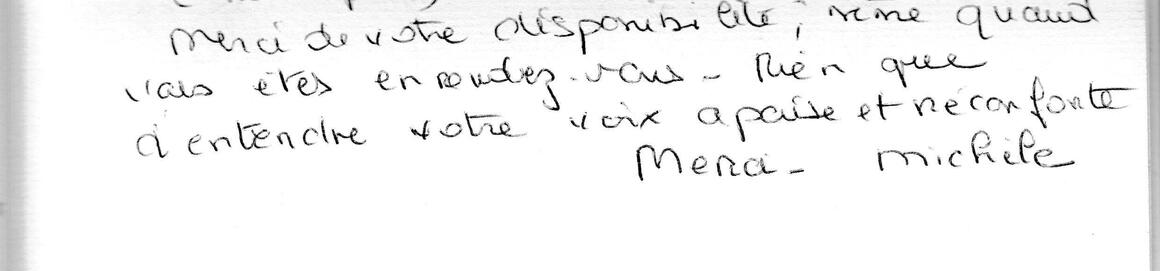 Merci de votre disponibilité, même quand
vous êtes en rendez-vous - Rien que
d'entendre votre voix apaise et réconforte
Merci - Michèle